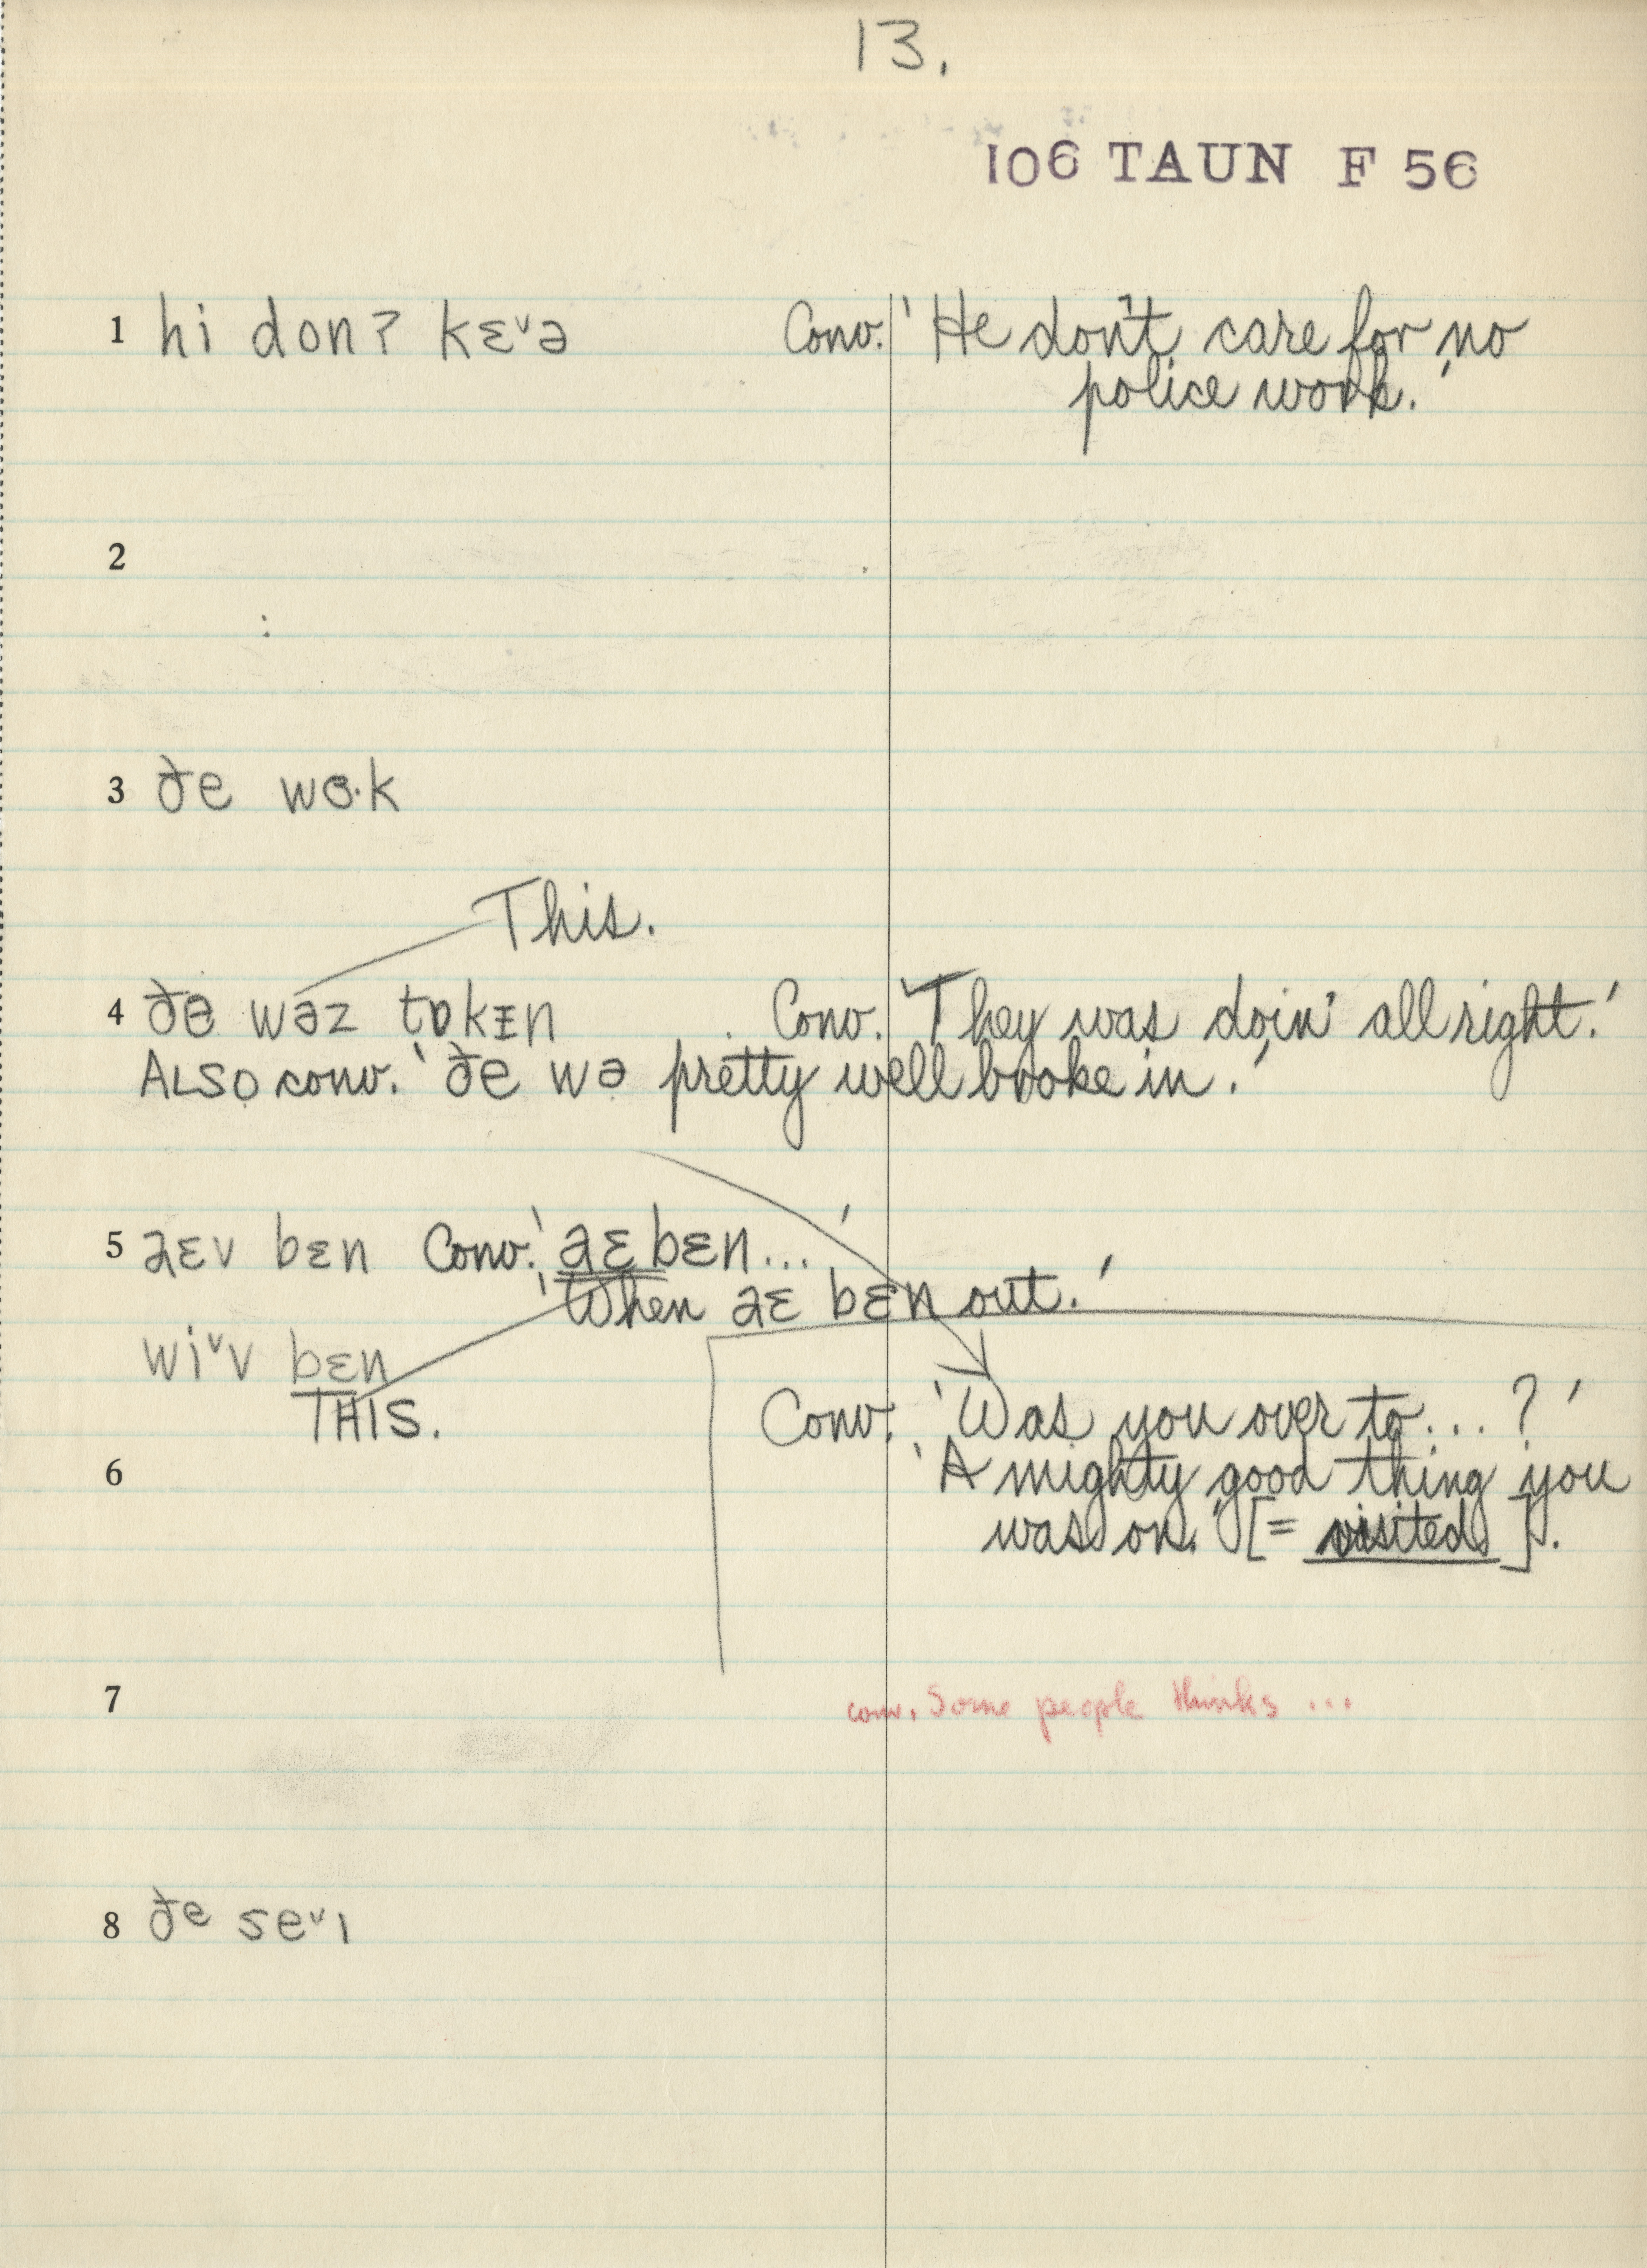 13.
106 TAUN F 56
1 hi donʔ kɛˇə Conv. 'He don't care for no
police work.'
2
3 ðe wɵ·k
This.
4 ðɵ wəz tɒkɪn Conv. 'They was doin' all right.'
ALSO conv. 'ðe wə pretty well broke in.'
5 aɛv bɛn Conv. 'aɛ bɛn...'
'When aɛ bɛn out.'
wiˇv bɛn
THIS.
Conv. 'Was you over to...?'
6 'A mighty good thing you
was on.' [= visited].
7 conv. Some people thinks ...
8 ðe seˇɪ